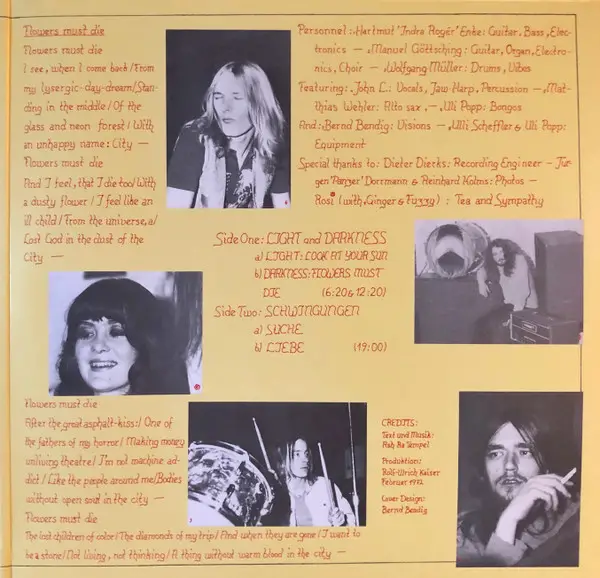 Flowers must die
Flowers must die
I see, when I come back / From
my lysergic-day-dream / Stan-
ding in the middle / Of the
glass and neon forest / With
an unhappy name: City —
Flowers must die
And I feel, that I die too / With
a dusty flower / I feel like an
ill child / From the universe, a /
Lost God in the dust of the
City —
Personnel: „Hartmut 'Indra Roger' Enke: Guitar, Bass, Elec-
tronics — „Manuel Göttsching: Guitar, Organ, Electro-
nics, Choir — „Wolfgang Müller: Drums, Vibes
Featuring: „John L.: Vocals, Jaw Harp, Percussion — „Mat-
thias Wehler: Alto sax, —, „Uli Popp: Bongos
And: „Bernd Bendig: Visions —, „Ulli Scheffler & Uli Popp:
Equipment
Special thanks to: Dieter Dierks: Recording Engineer — Jür-
gen 'Panzer' Dorrmann & Reinhard Kolms: Photos —
Rosi (with, Ginger & Fuzzy) : Tea and Sympathy
Side One: LIGHT and DARKNESS
a) LIGHT: LOOK AT YOUR SUN
b) DARKNESS: FLOWERS MUST
DIE (6:20 & 12:20)
Side Two: SCHWINGUNGEN
a) SUCHE
b) LIEBE (19:00)
Flowers must die
After the great asphalt-kiss: / One of
the fathers of my horror / Making money
unliving theatre / I'm not machine ad-
dict / Like the people around me / Bodies
without open soul in the city —
Flowers must die
The lost children of color / The diamonds of my trip / And when they are gone / I want to
be a stone / Not living, not thinking / A thing without warm blood in the city —
CREDITS:
Text und Musik:
Ash Ra Tempel
Produktion:
Rolf-Ulrich Kaiser
Februar 1972
Cover Design:
Bernd Bendig